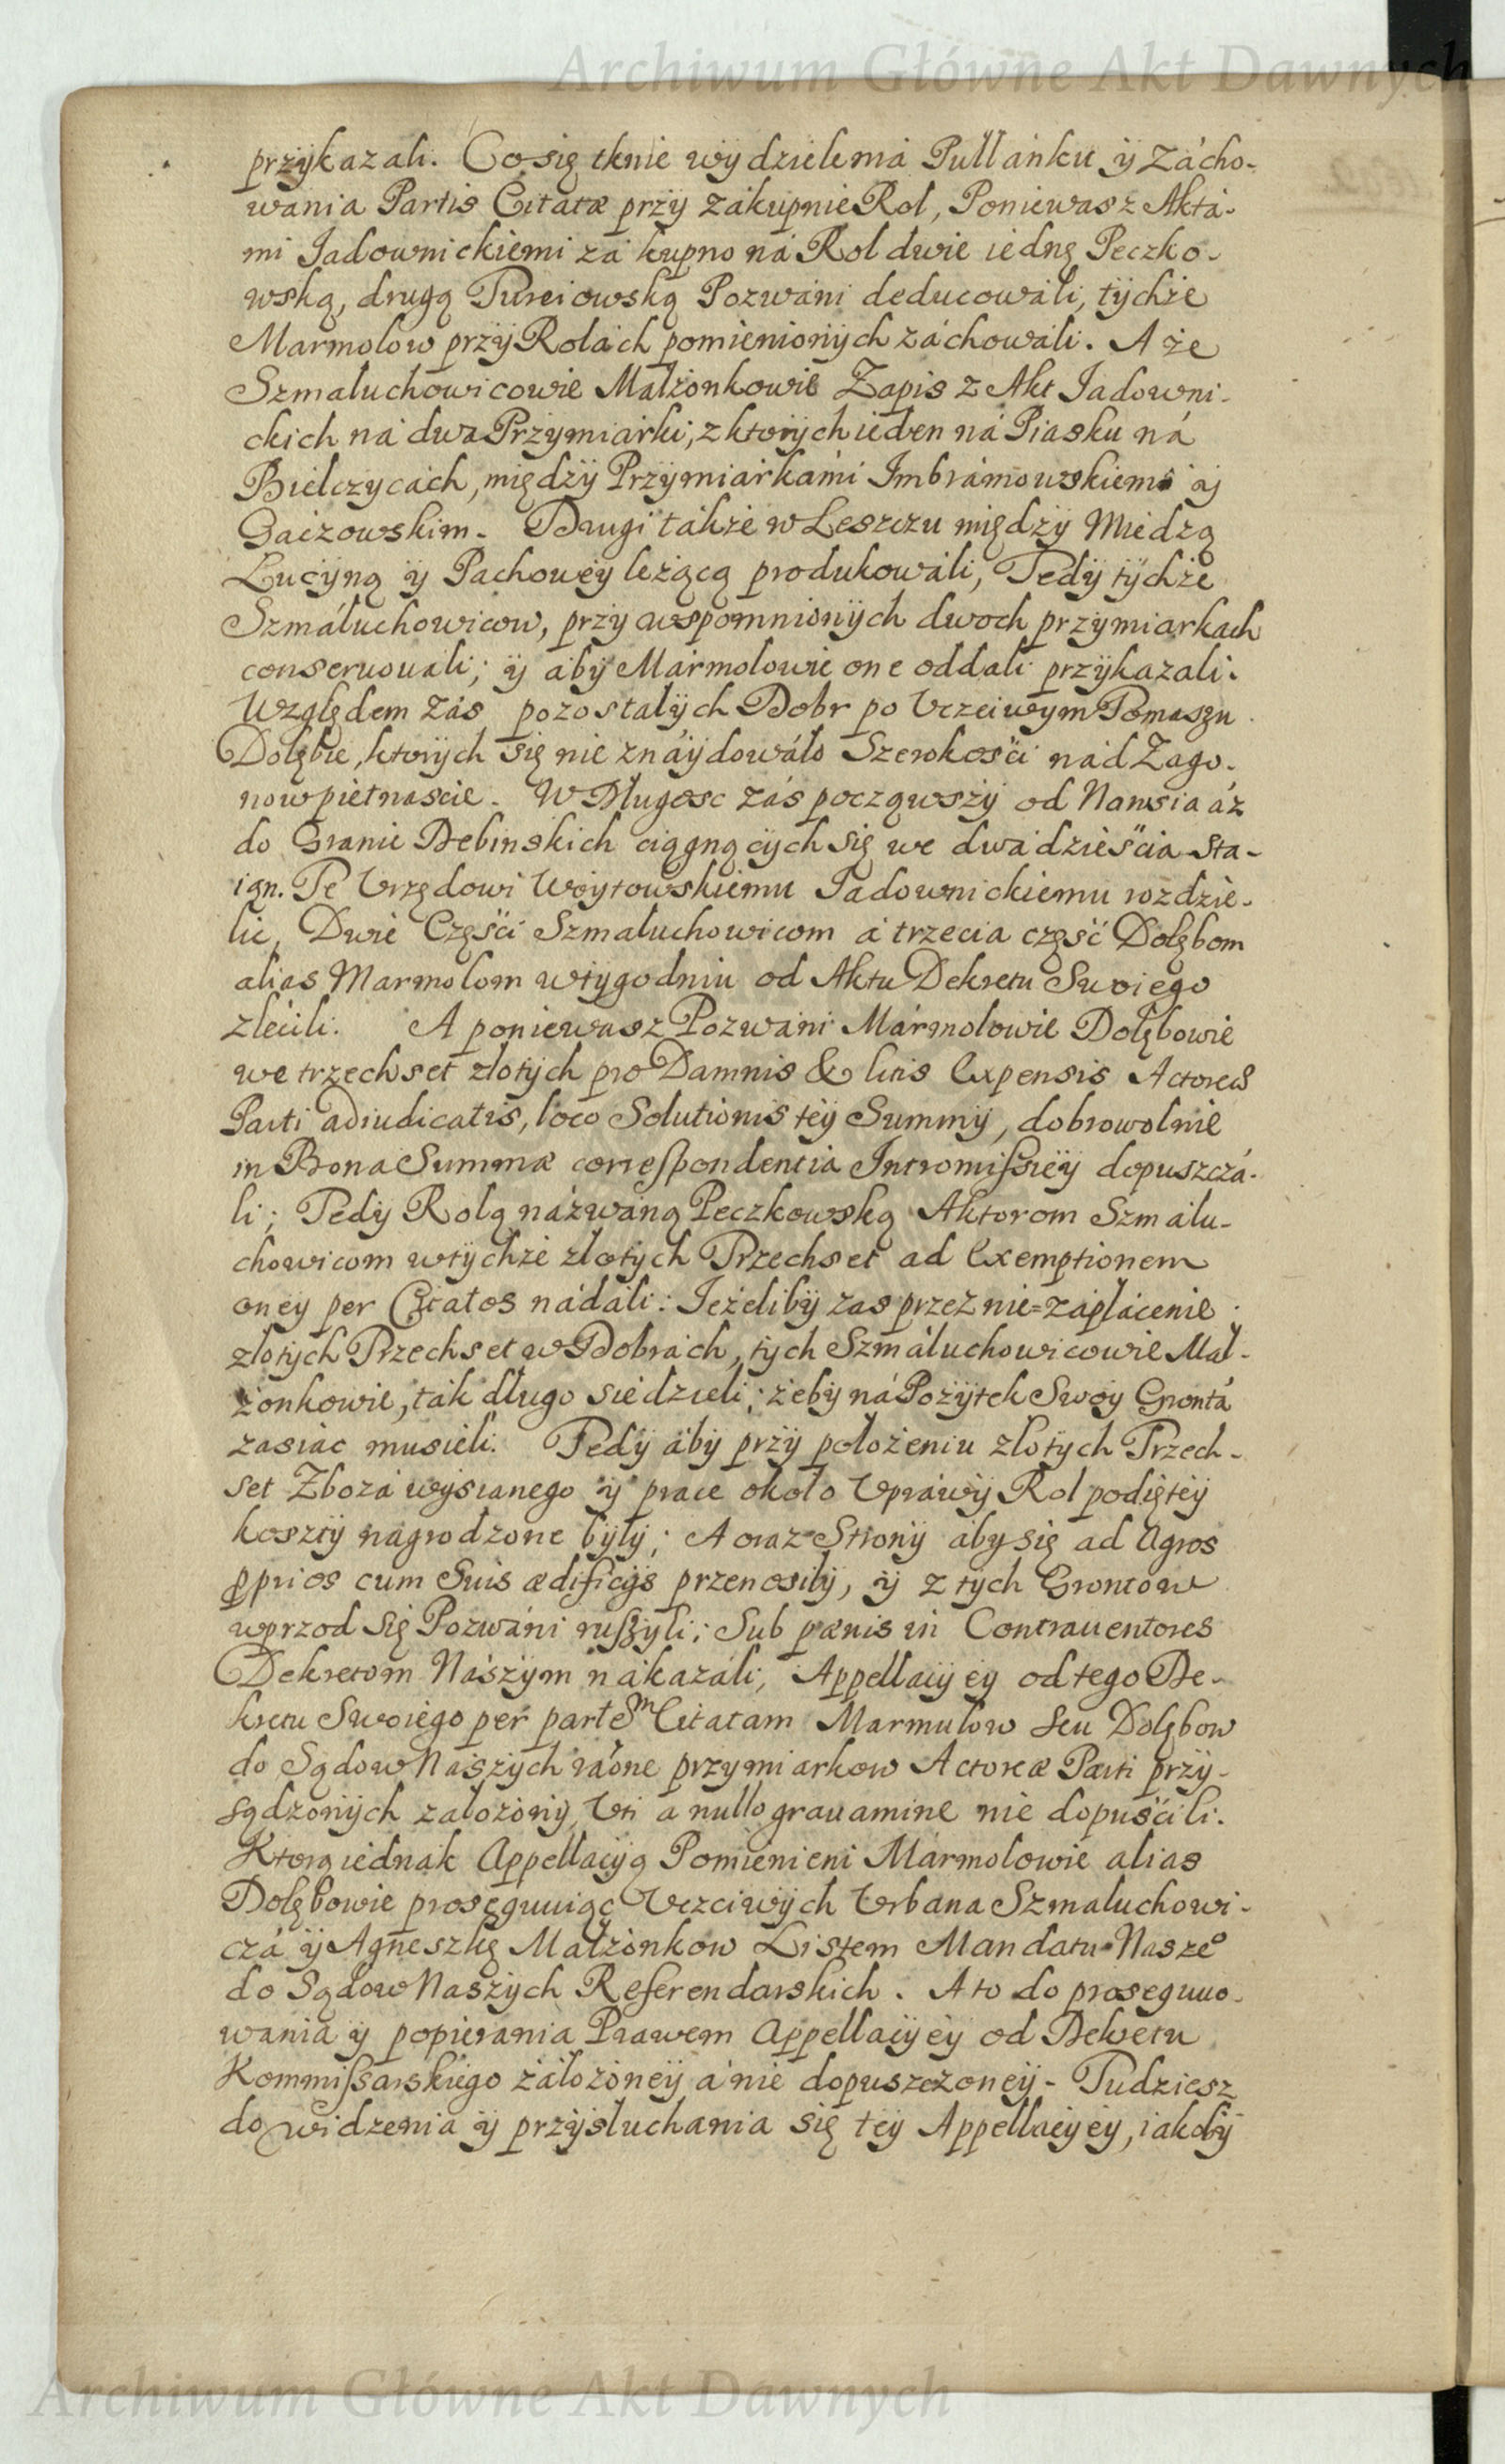 Archiwum Główne Akt Dawnych
przykazali. Co się tknie wydzielenia Pułłanku ÿ Zácho-
wania Partis Citatæ przy zakupnie Rol, Poniewasz Akta-
mi Jadownickiemi za kupno ná Rol dwie iednę Peczko-
wską, drugą Turciowską Pozwáni deducowáli, tÿchże
Marmolow przÿ Rolách pomienionÿch záchowáli. A że
Szmaluchowicowie Małżonkowie Zapis z Akt Jadowni-
ckich ná dwa Przymiarki, z ktorych ieden ná Piasku ná
Bielczycách, międzÿ Przÿmiarkámi Imbrámowskiemi aj
Gaizowskim. Drugi także w Leszczu międzÿ Miedzą
Łucÿną ÿ Páchowey leżącą produkowáli, Tedÿ tÿchże
Szmáluchowicow, przy wspomnionÿch dwoch przymiarkach
conseruouali; ÿ aby Marmolowie one oddali przÿkazali.
Względem Zás pozostałÿch Dobr po Vczciwym Tomaszu
Dołębie, ktorÿch się nie znáydowáło Szerokości nád Zago-
now pietnascie. W Długosc zás począwszÿ od Nawsia áz
do Granic Debinskich ciągnącÿch się we dwadzieścia sta-
ian. Te Vrzędowi Woÿtowskiemu Jadownickiemu rozdzie-
lic, Dwie Części Szmaluchowicom á trzecia część Dołębom
alias Marmolom w tÿgodniu od Aktu Dekretu Swoiego
zlecili. A poniewasz Pozwáni Mármolowie Dołębowie
we trzechset złotÿch pro Damnis & litis Expensis Actoreæ
Parti adiudicatis, loco Solutionis teÿ Summÿ, dobrowolnie
in Bona Summæ correspondentia Intromissieÿ dopuszczá-
li; Tedÿ Rolą názwáną Peczkowską Aktorom Szmálu-
chowicom w tÿchże złotÿch Trzechset ad Exemptionem
oney per Citatos nádáli: Jeżelibÿ zas przez nie=zápłácenie
złotÿch Trzechset w Dobrách, tych Szmáluchowicowie Mał-
żonkowie, ták długo siedzieli, żebÿ ná Pożÿtek Swoÿ Grontá
zasiac musieli. Tedÿ ábÿ przÿ położeniu złotÿch Trzech-
set Zbozá wÿsianego ÿ prace około Vpráwÿ Rol podiętéÿ
kosztÿ nagrodzone bÿłÿ; A oraz Stronÿ abÿ się ad Agros
pprios cum Suis ædificijs przenosiłÿ, ÿ z tÿch Grontow
wprzod Się Pozwáni ruszyli; Sub pœnis in Contrauentores
Dekretom Nászÿm nákazáli, Appellacÿeÿ od tego De-
kretu Swoiego per partem Citatam Marmulow seu Dołębow
do Sądow Nászÿch ráone przymiarkow Actoreæ Parti przÿ-
sądzonÿch założonÿ, Vti a nullo grauamine nie dopuścili.
Ktorą iednák Appellacÿą Pomienieni Mármolowie alias
Dołębowie prosęguuiąc Vczciwÿch Vrbana Szmaluchowi-
czá ÿ Agneszkę Małżonkow Listem Mandatu Naszeº
do Sądow Naszÿch Referendarskich. A to do proseguuo-
wania ÿ popierania Prawem Appellacÿeÿ od Dekretu
Kommissarskiego záłożoneÿ á nie dopuszczoneÿ- Tudziesz
do widzenia ÿ przÿsłuchania się teÿ Appellacÿeÿ, iakobÿ
Archiwum Główne Akt Dawnych